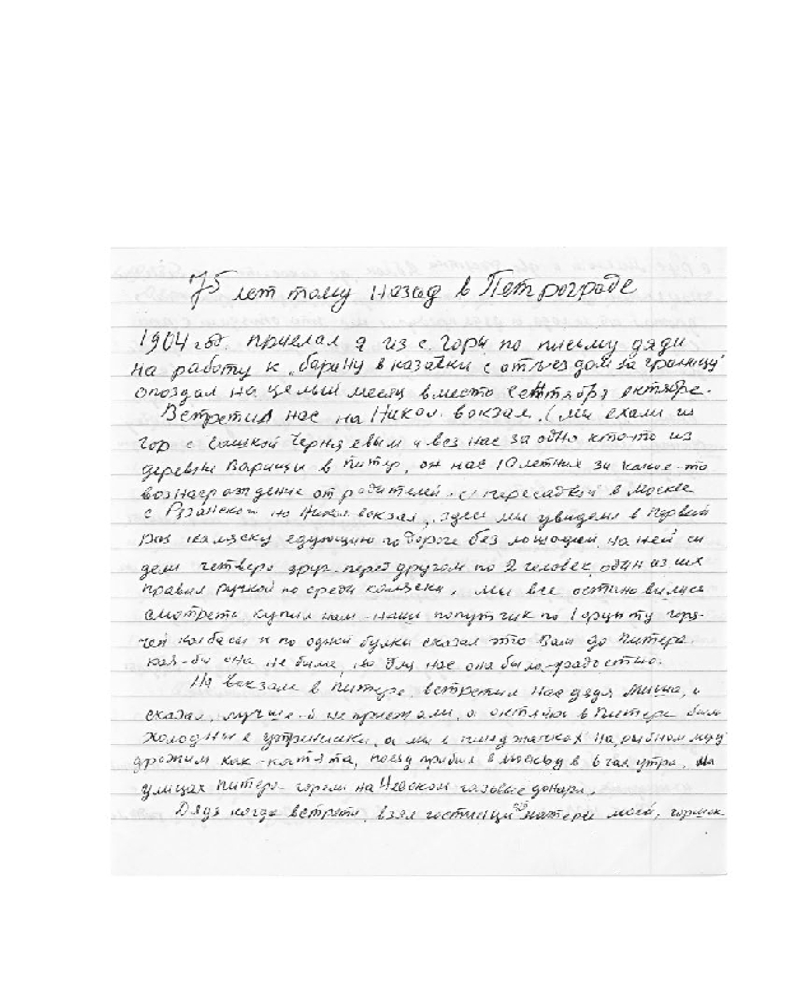 75 лет тому назад в Петрограде
1904 год. приехал я из с. Горы по письму дяди
на работу к „барану в казачки с отъездом за границу"
опоздал на целый месяц вместо сентября октябре.
Встретил нас на Никол. вокзал. (мы ехали из
гор с Сашкой Черняевым и вез нас заодно кто-то из
деревни Варищи в Питер, он нас 10 летних за какое-то
вознаграждение от родителей. с пересадкой в Москве
с Рязанской на Никол вокзал, здесь мы увидели в первый
раз коляску едующию по дороге без лошадей, на ней си
дели четверо друг-перед другом по 2 человек, один из их
правил ручкой по среди коляски, мы все остановились
смотреть, купил нам наш попутчик по 1 фунту горя-
чей колбасы и по одной булки сказал это Вам до Питера.
как-бы она не была, но для нас она была-радостью.
На вокзале в Питере, встретил нас дядя Миша, и
сказал, лучше-б не приежали, а октябрь в Питере были
холодные утринники, а мы в пиньджачках на рыбном меху
дрожим как котята, поезд прибыл в Москву в 6 час утра, на
улицах Питера горели на Невском газовые фонари.
Дядя когда встретил, взял гостинцы матери моей, горшок